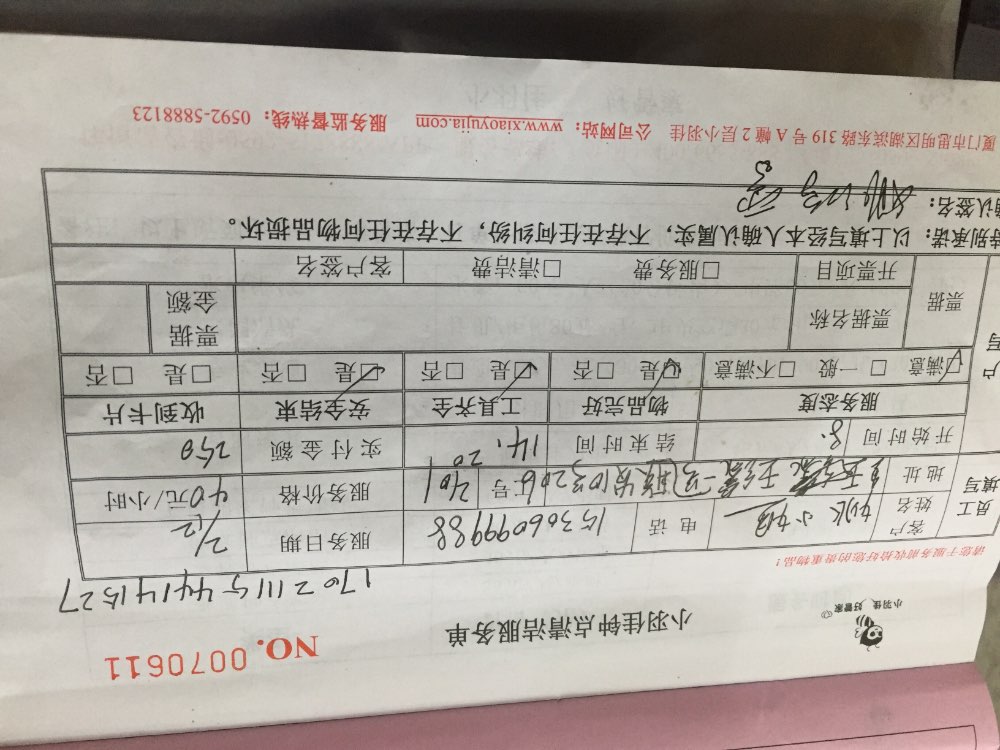 小羽佳 好管家
小羽佳钟点清洁服务单
NO. 0070611
170211154414 1527
请您于服务前收拾好您的贵重物品！
员工填写
客户姓名 小姐 电话 15306099988 服务日期 2/12
地址 号 401 服务价格 40元/小时
开始时间 8. 结束时间 14.20 实付金额 250
服务态度 物品完好 工具齐全 安全结束 收到卡片
☑满意 □一般 □不满意 ☑是 □否 ☑是 □否 ☑是 □否 □是 □否
户
写
票据 票据名称 票据金额
开票项目 □服务费 □清洁费 客户签名
特别承诺：以上填写经本人确认属实，不存在任何纠纷，不存在任何物品损坏。
确认签名：
厦门市思明区湖滨东路 319 号 A 幢 2 层小羽佳 公司网站：www.xiaoyujia.com 服务监督热线：0592-5888123